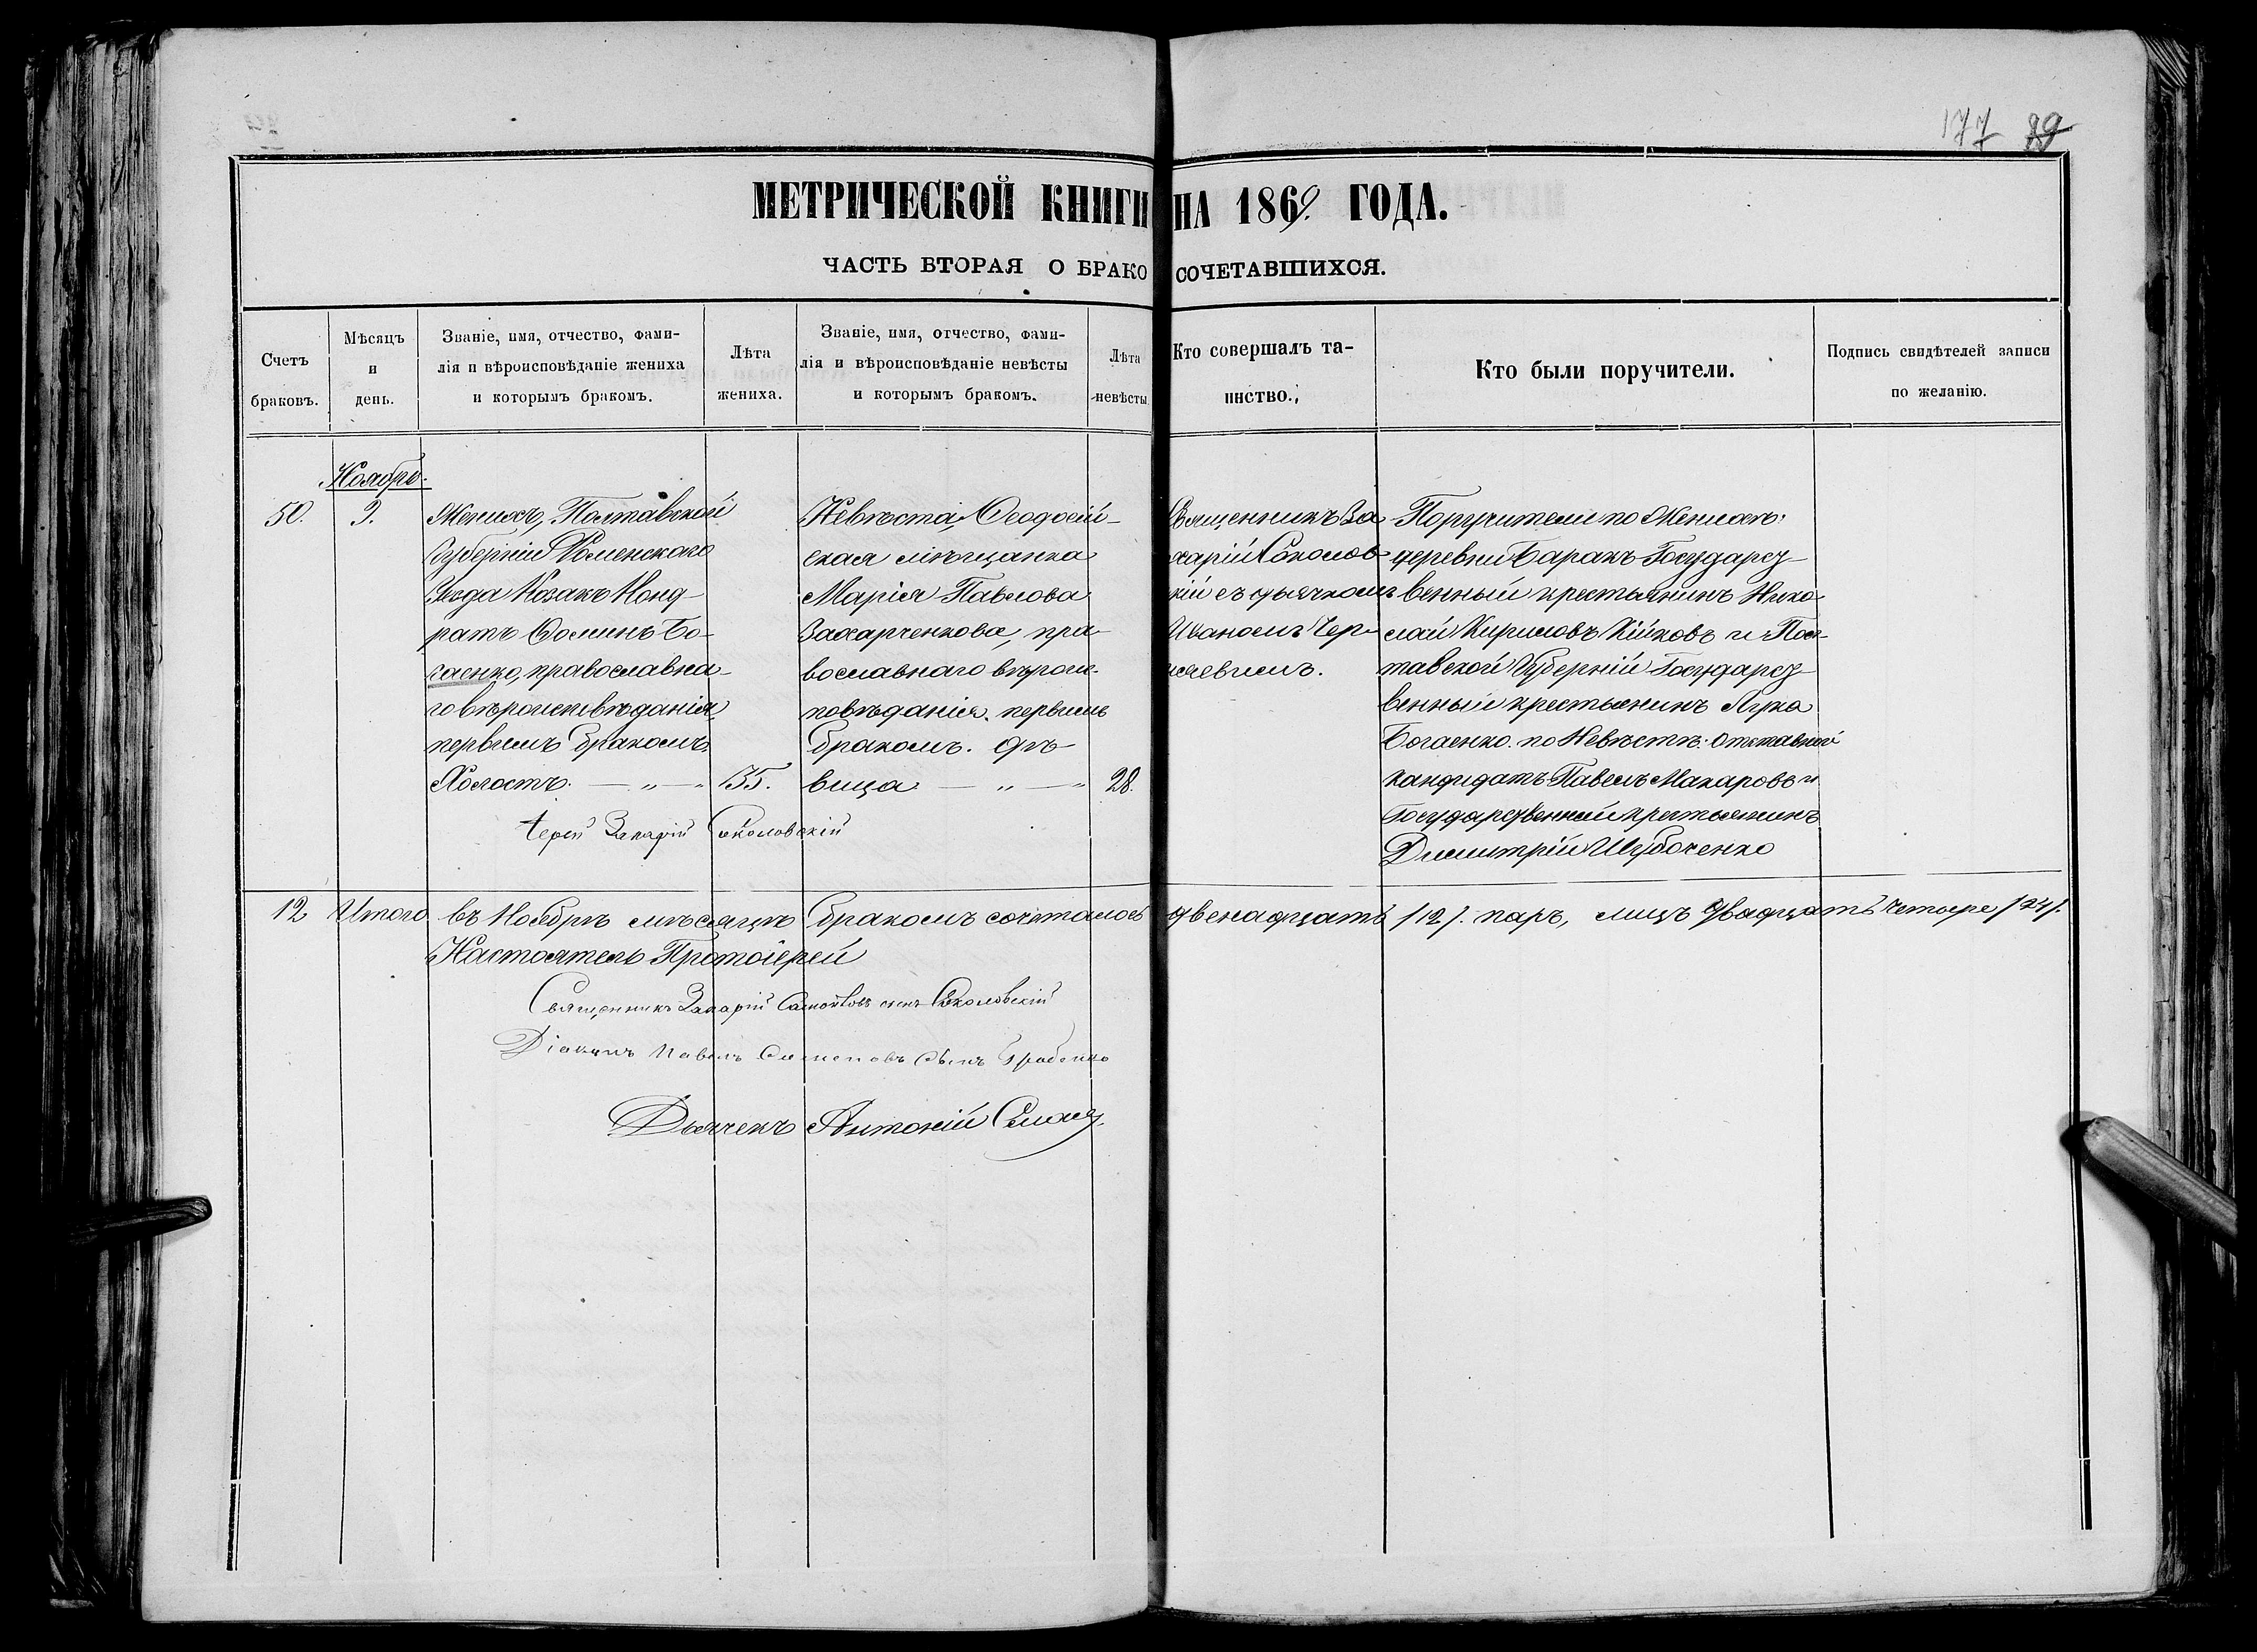 177 89
МЕТРИЧЕСКОЙ КНИГИ НА 1869. ГОДА.
ЧАСТЬ ВТОРАЯ О БРАКОСОЧЕТАВШИХСЯ.
Счетъ браковъ.
Мѣсяцъ и день.
Званіе, имя, отчество, фами-
лія и вѣроисповѣданіе жениха
и которымъ бракомъ.
Лѣта жениха.
Званіе, имя, отчество, фами-
лія и вѣроисповѣданіе невѣсты
и которымъ бракомъ.
Лѣта невѣсты
Кто совершалъ та-
инство.
Кто были поручители.
Подпись свидѣтелей записи
по желанію.
Ноябрь.
50.
9.
Женихъ, Полтавской
Губерніи Роменскаго
Уѣзда Козакъ Конд-
ратъ Фоминъ Бо-
гаенко, православна-
го вѣроисповѣданія,
первымъ бракомъ.
Холостъ. — „ — „
35.
Невѣста, Ѳеодосій-
ская мѣщанка
Марія Павлова
Захарченкова, пра-
вославнаго вѣрои-
повѣданія, первымъ
бракомъ. дѣ-
вица — „ — „
28.
Священникъ За-
харій Соколов-
кій съ дьячкомъ
Иваномъ Чер-
нявимъ.
Поручители по Женихѣ:
деревни Баракъ Государст-
венный крестьянинъ Нико-
лай Кириловъ Кійковъ и Пол-
тавской Губерніи Государст-
венный крестьянинъ Лука
Богаенко. по Невѣстѣ: Отставной
кандидатъ Павелъ Макаровъ и
Государственный крестьянинъ
Димитрій Шубоченко
Іерей Захарій Соколовскій
12 Итого въ Ноябрѣ мѣсяцѣ бракомъ сочталось двенадцать /12/. паръ, лицъ двадцать четыре /24/.
Настоятель Протоіерей
Священникъ Захарій сынъ Соколовскій
Діаконъ Павелъ Симеоновъ сынъ
Дьячекъ Антоній